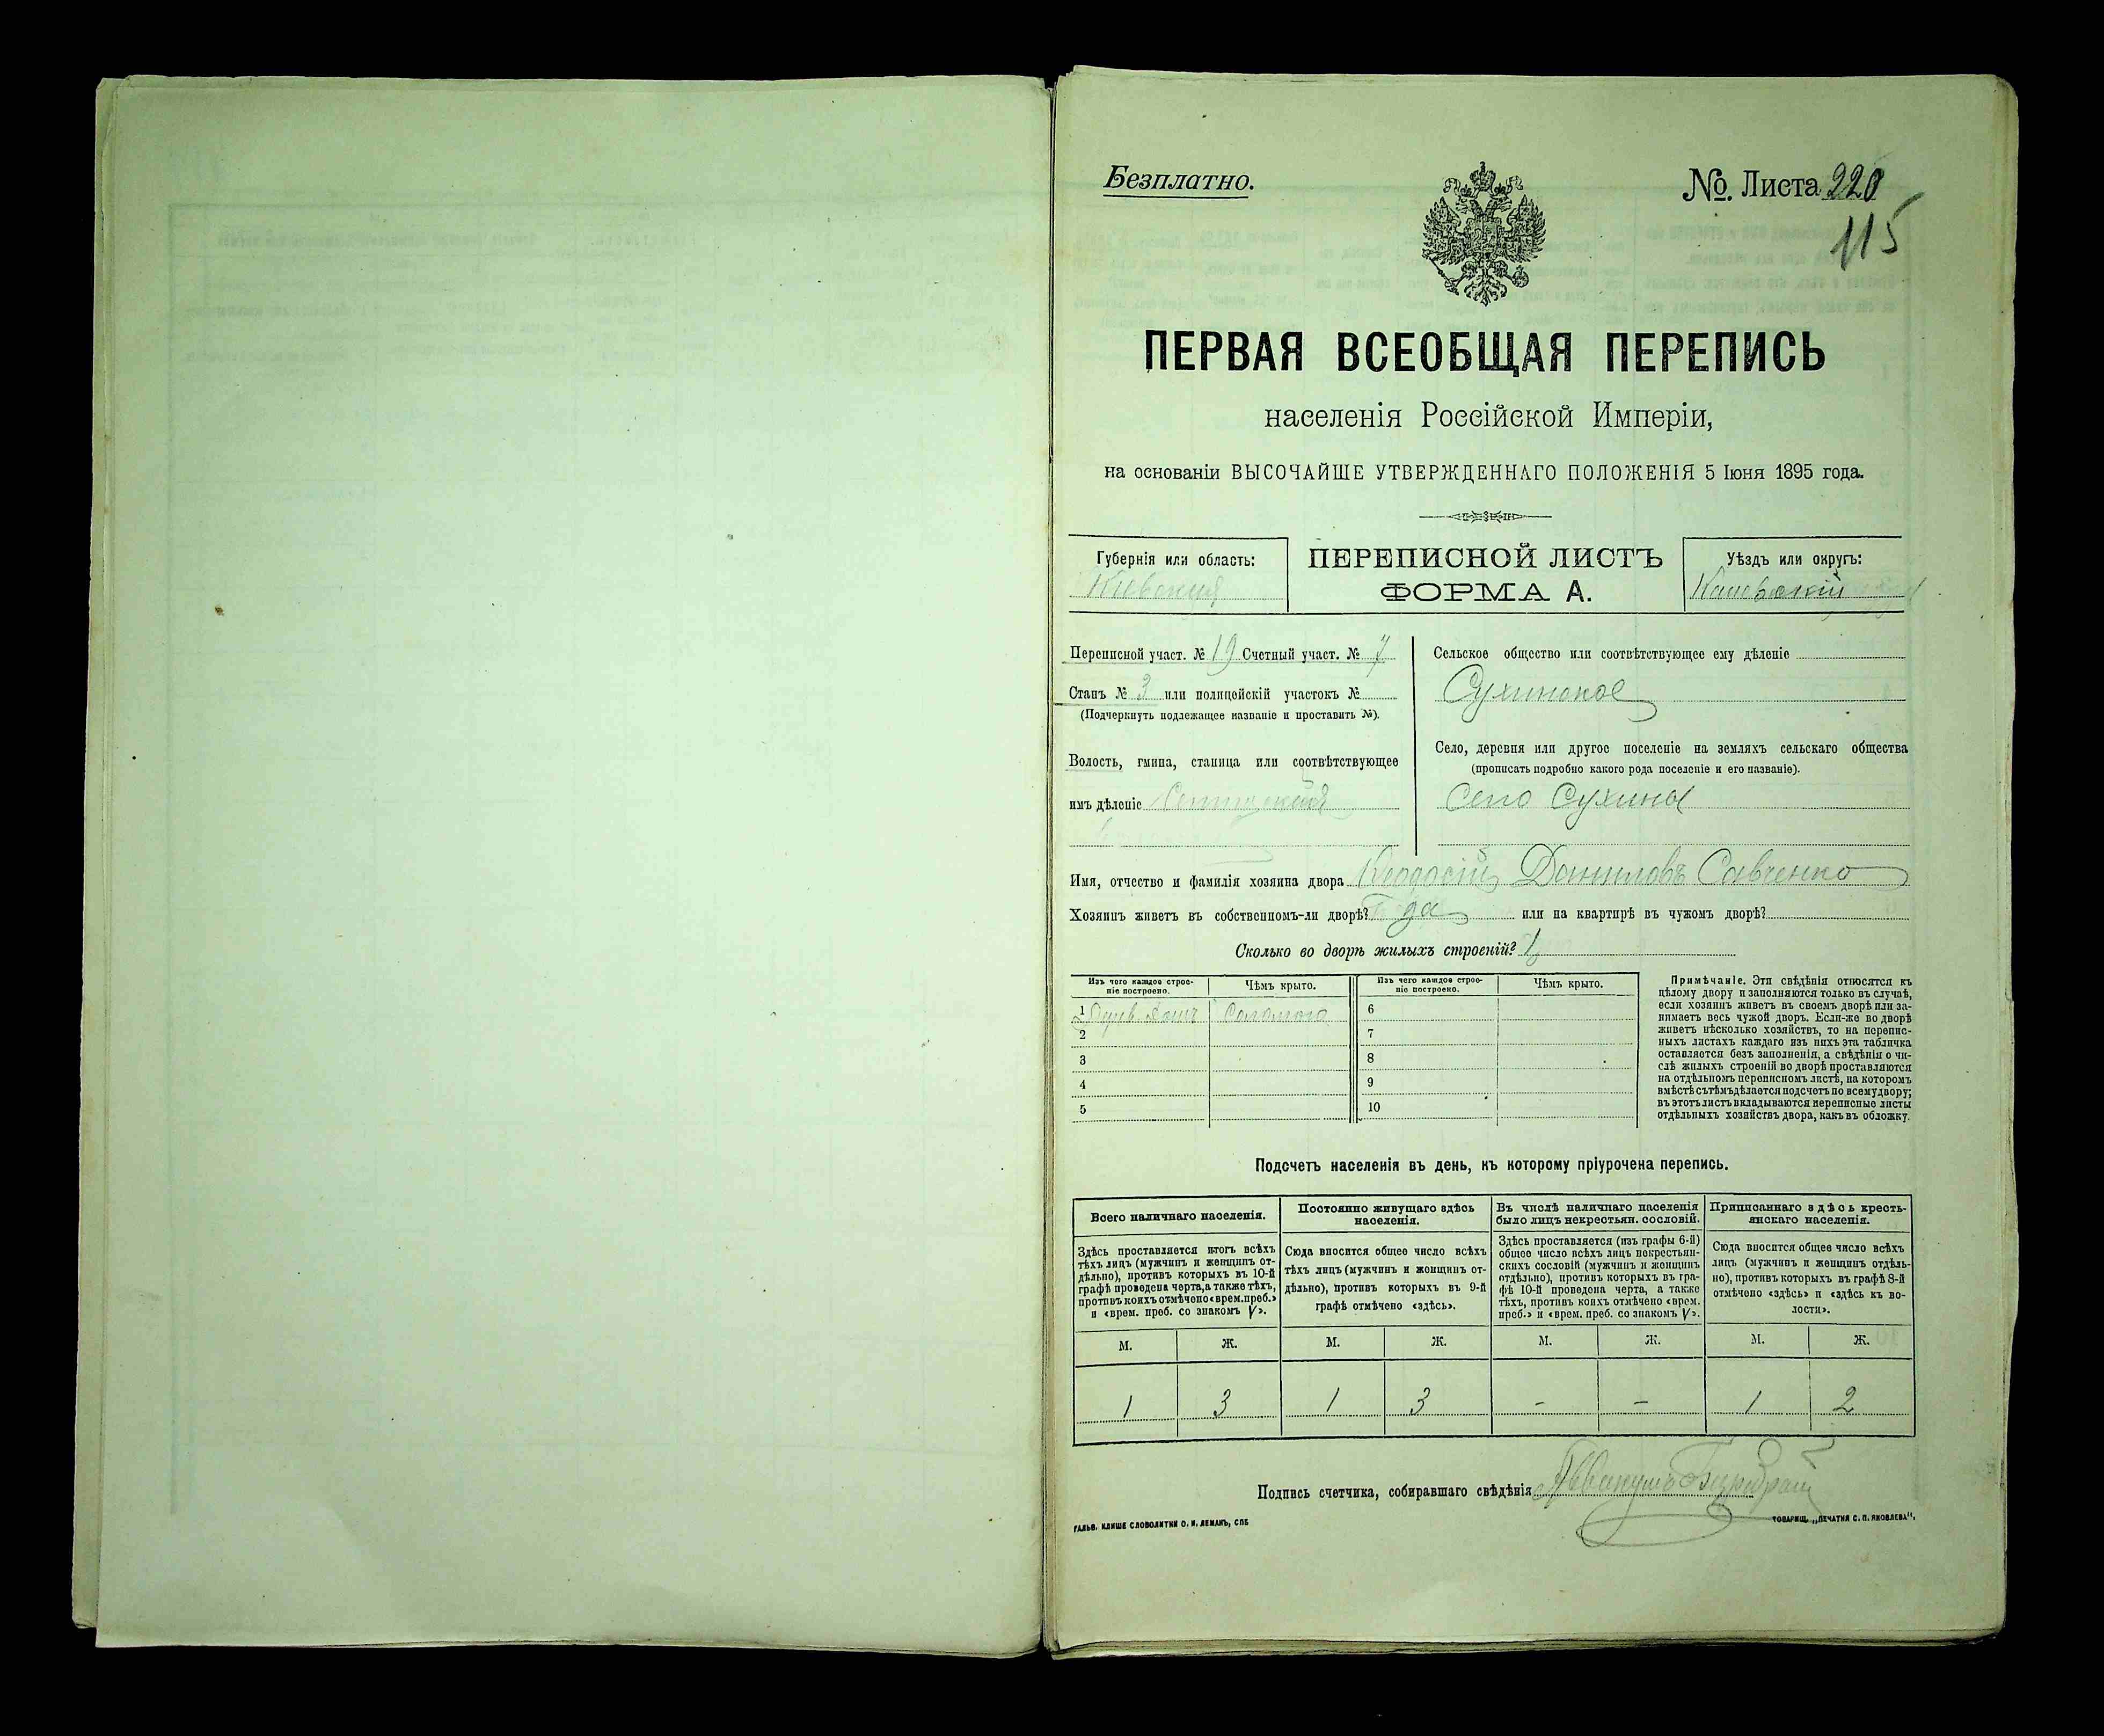 Безплатно.
№. Листа 220
115
ПЕРВАЯ ВСЕОБЩАЯ ПЕРЕПИСЬ
населенія Россійской Имперіи,
на основаніи ВЫСОЧАЙШЕ УТВЕРЖДЕННАГО ПОЛОЖЕНІЯ 5 Іюня 1895 года.
Губернія или область:
Кіевская
ПЕРЕПИСНОЙ ЛИСТЪ
ФОРМА А.
Уѣздъ или округъ:
Каневскій
Переписной участ. № 19 Счетный участ. № 7
Станъ № 3 или полицейскій участокъ №
(Подчеркнуть подлежащее названіе и проставить №).
Волость, гмина, станица или соотвѣтствующее
имъ дѣленіе
Сельское общество или соотвѣтствующее ему дѣленіе
Сухинское
Село, деревня или другое поселеніе на земляхъ сельскаго общества
(прописать подробно какого рода поселеніе и его названіе).
Село Сухины
Имя, отчество и фамилія хозяина двора Даниловъ Савченко
Хозяинъ живетъ въ собственномъ-ли дворѣ? да или на квартирѣ въ чужомъ дворѣ?
Сколько во дворѣ жилыхъ строеній? 1
Изъ чего каждое строе-
ніе построено.
Чѣмъ крыто.
Изъ чего каждое строе-
ніе построено.
Чѣмъ крыто.
1 Соломою
2
3
4
5
6
7
8
9
10
Примѣчаніе. Эти свѣдѣнія относятся къ
цѣлому двору и заполняются только въ случаѣ,
если хозяинъ живетъ въ своемъ дворѣ или за-
нимаетъ весь чужой дворъ. Если-же во дворѣ
живетъ нѣсколько хозяйствъ, то на перепис-
ныхъ листахъ каждаго изъ нихъ эта табличка
оставляется безъ заполненія, а свѣдѣнія о чи-
слѣ жилыхъ строеній во дворѣ проставляются
на отдѣльномъ переписномъ листѣ, на которомъ
вмѣстѣ съ тѣмъ дѣлается подсчетъ по всему двору;
въ этотъ листъ вкладываются переписные листы
отдѣльныхъ хозяйствъ двора, какъ въ обложку.
Подсчетъ населенія въ день, къ которому пріурочена перепись.
Всего наличнаго населенія.
Здѣсь проставляется итогъ всѣхъ
тѣхъ лицъ (мужчинъ и женщинъ от-
дѣльно), противъ которыхъ въ 10-й
графѣ проведена черта, а также тѣхъ,
противъ коихъ отмѣчено «врем. преб.»
и «врем. преб. со знакомъ V».
Постоянно живущаго здѣсь
населенія.
Сюда вносится общее число всѣхъ
тѣхъ лицъ (мужчинъ и женщинъ от-
дѣльно), противъ которыхъ въ 9-й
графѣ отмѣчено «здѣсь».
Въ числѣ наличнаго населенія
было лицъ некрестьян. сословій.
Здѣсь проставляется (изъ графы 6-й)
общее число всѣхъ лицъ некрестьян-
скихъ сословій (мужчинъ и женщинъ
отдѣльно), противъ которыхъ въ гра-
фѣ 10-й проведена черта, а также
тѣхъ, противъ коихъ отмѣчено «врем.
преб.» и «врем. преб. со знакомъ V».
Приписаннаго здѣсь кресть-
янскаго населенія.
Сюда вносится общее число всѣхъ
лицъ (мужчинъ и женщинъ отдѣль-
но), противъ которыхъ въ графѣ 8-й
отмѣчено «здѣсь» и «здѣсь къ во-
лости».
М. Ж. М. Ж. М. Ж. М. Ж.
1 3 1 3 - - 1 2
Подпись счетчика, собиравшаго свѣдѣнія
ГАЛЬВ. КЛИШЕ СЛОВОЛИТНИ О. И. ЛЕМАНЪ, СПБ
ТОВАРИЩ. „ПЕЧАТНЯ С. П. ЯКОВЛЕВА".